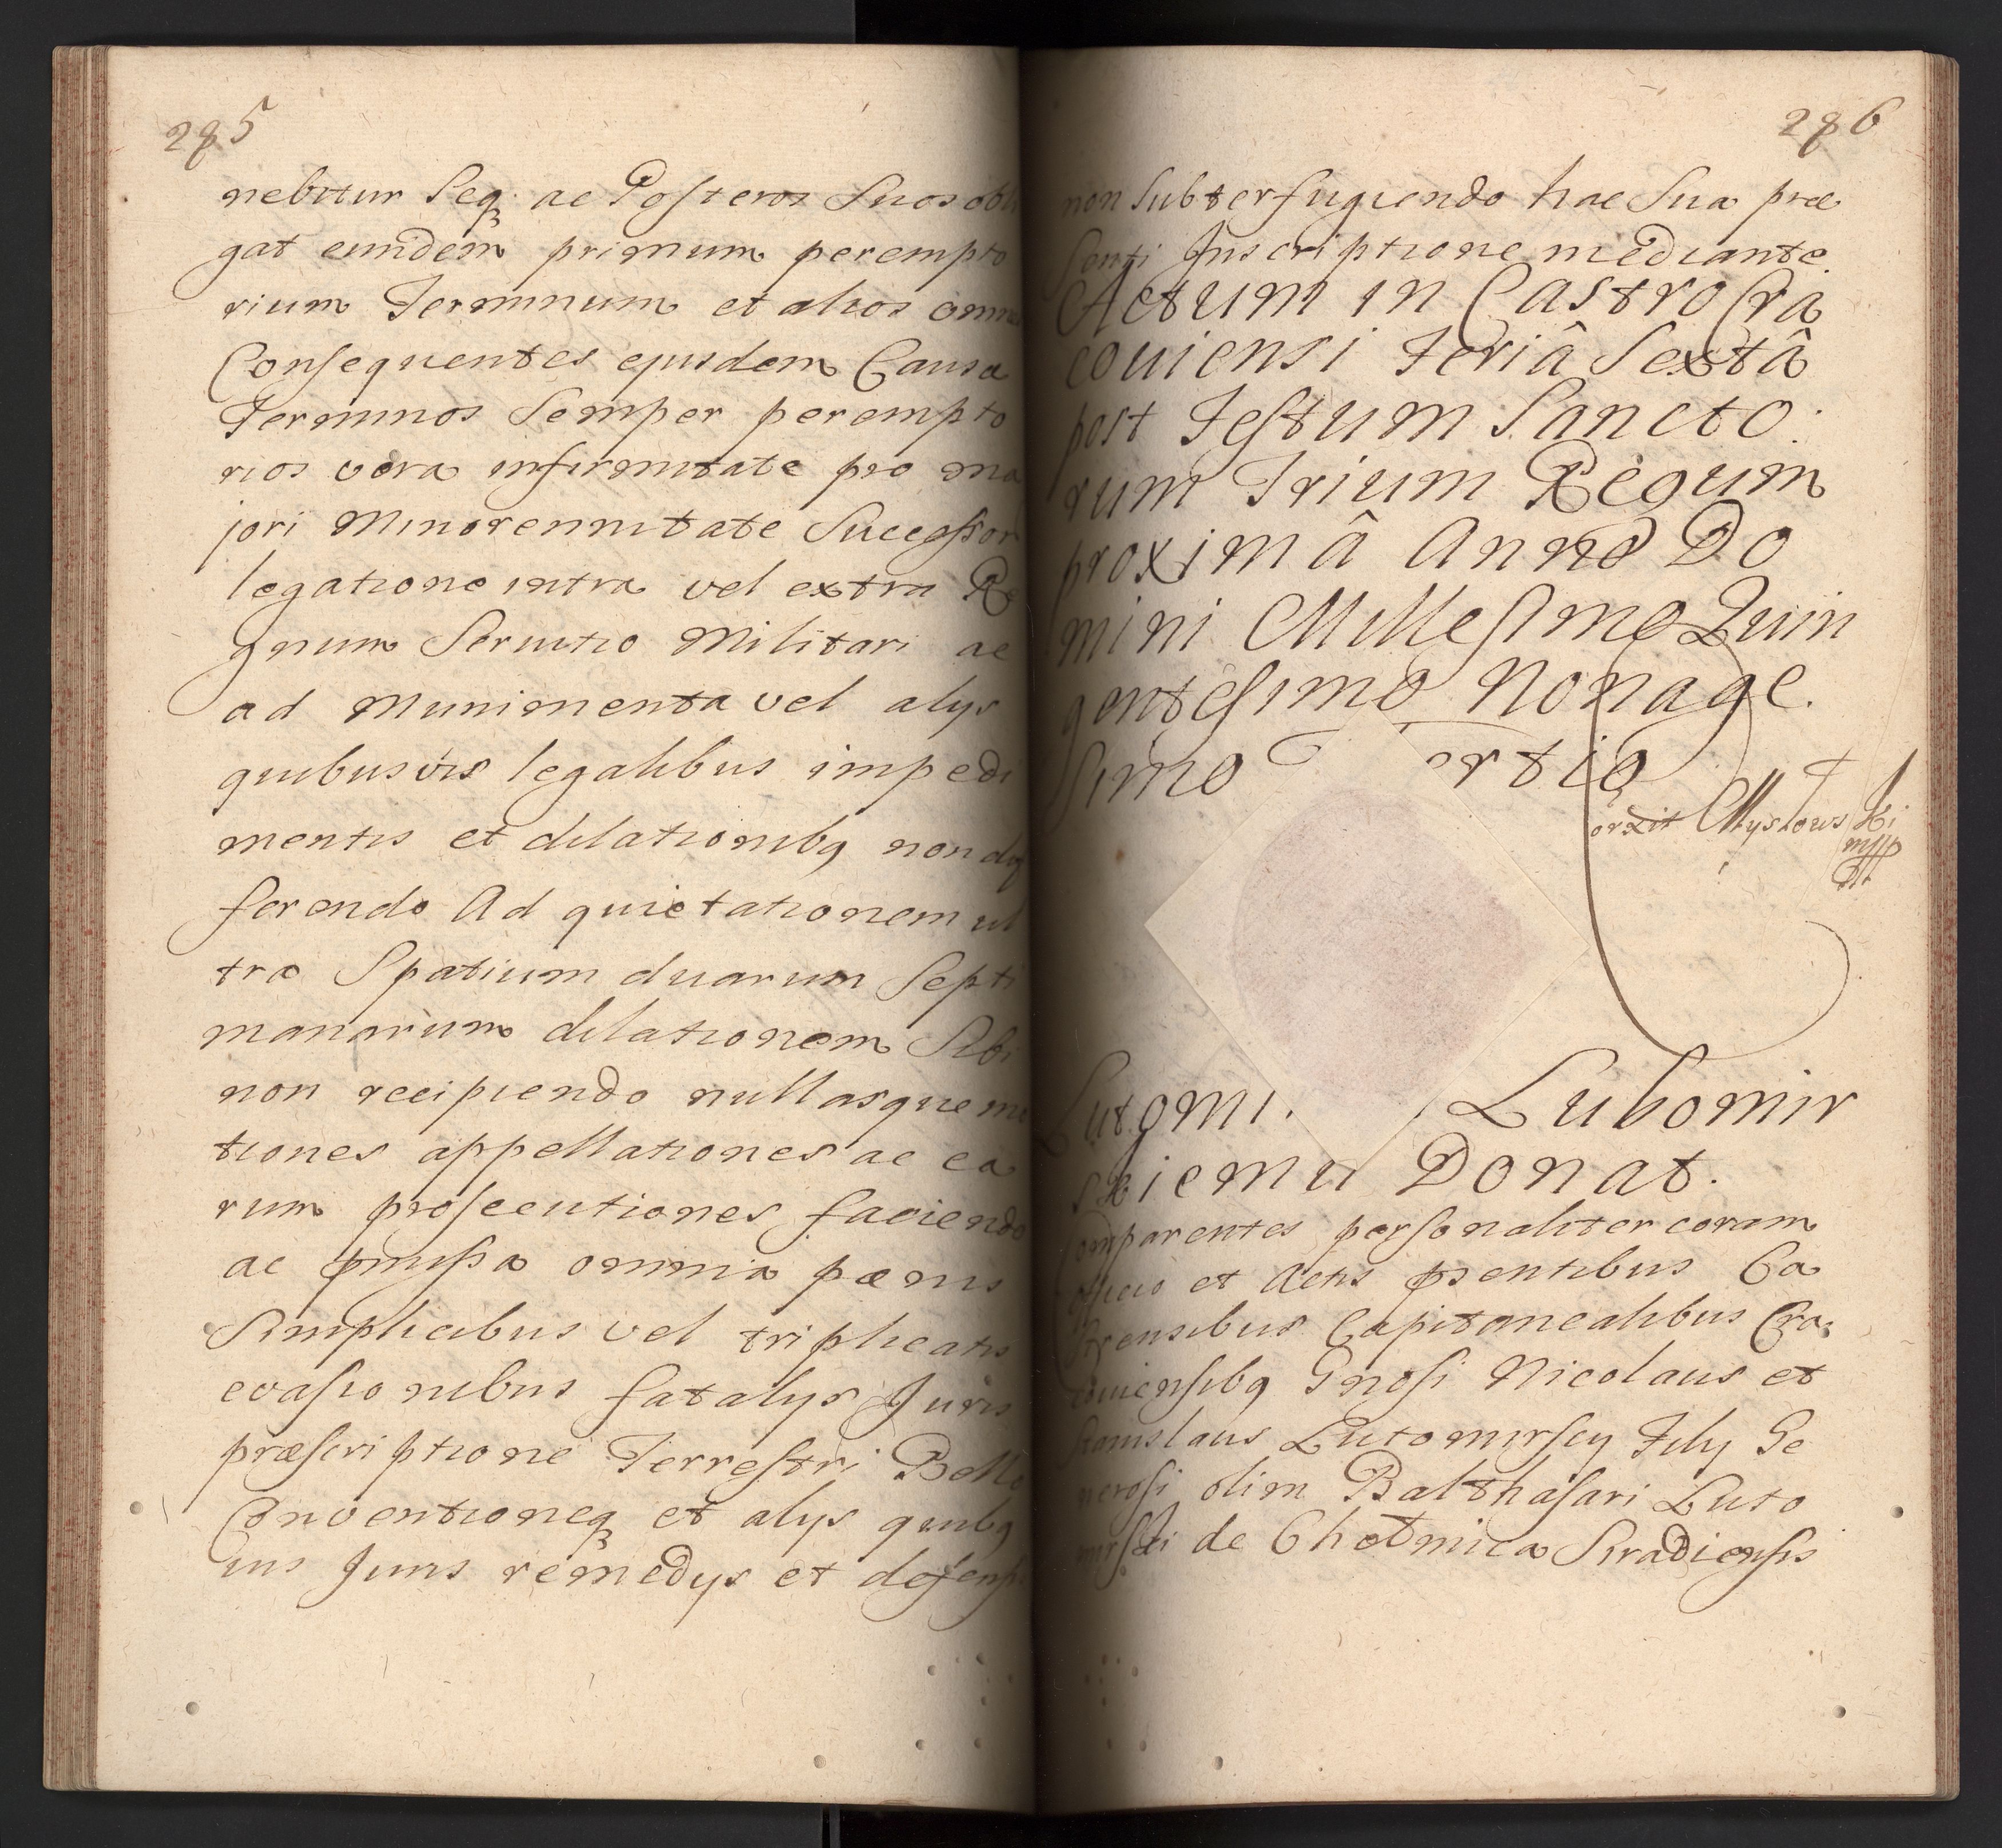 285
nebitur Seq; ac Posteros Suos obli
gat eundem primum perempto
rium Terminum et alios omn
Consequentes ejusdem Causa
Terminos Semper perempto
rios vera infirmitate pro ma
jori Minorennitate Successor
legatione intra vel extra Re
gnum Servitio Militari ac
ad Munimenta vel alys
quibusvis legalibus impedi
mentis et dilationibq non dif
ferendo Ad quietationem ul
tra Spatium duarum Septi
manarum dilationem Sibi
non recipiendo nullasque mo
tiones appellationes ac ea
rum prosecutiones faciendo
ac pmissa omnia pænis
Simplicibus vel triplicatis
evasionibus fatalys Juris
præscriptione Terrestri Bello
Conventioneq; et alys quibq
uis Juris remedys et defensi
286
non Subterfugiendo hac Sua præ
senti Inscriptione mediante.
Actum in Castro Cra
coviensi Feriâ Sextâ
post Festum Sancto:
rum Trium Regum
proximâ Anno Do
mini Millesimo Quin
gentesimo Nonage.
simo T ertio
Lutomi. Lubomir
skiemu Donat.
Comparentes personaliter coram
officio et Actis psentibus Ca
strensibus Capitanealibus Cra:
coviensibq Gnosi Nicolaus et
Stanislaus Lutomirscy Fily Ge
nerosi olim Balthasari Luto
mirski de Chotmica Siradiensis